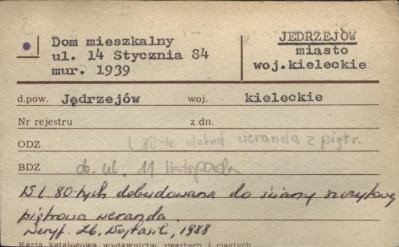 Dom mieszkalny
ul. 14 Stycznia 84
mur. 1939
JĘDRZEJÓW
miasto
woj.kieleckie
d.pow. Jędrzejów woj. kieleckie
Nr rejestru z dn.
ODZ l. 80-te dobud weranda z piętr.
BDZ ob. ul. 11 listopada
W l. 80-tych dobudowana do ściany szczytowej
piętrowa weranda.
Weryf. Zb. 1988
Karta katalogowa wydawnictw zwartych i ciągłych